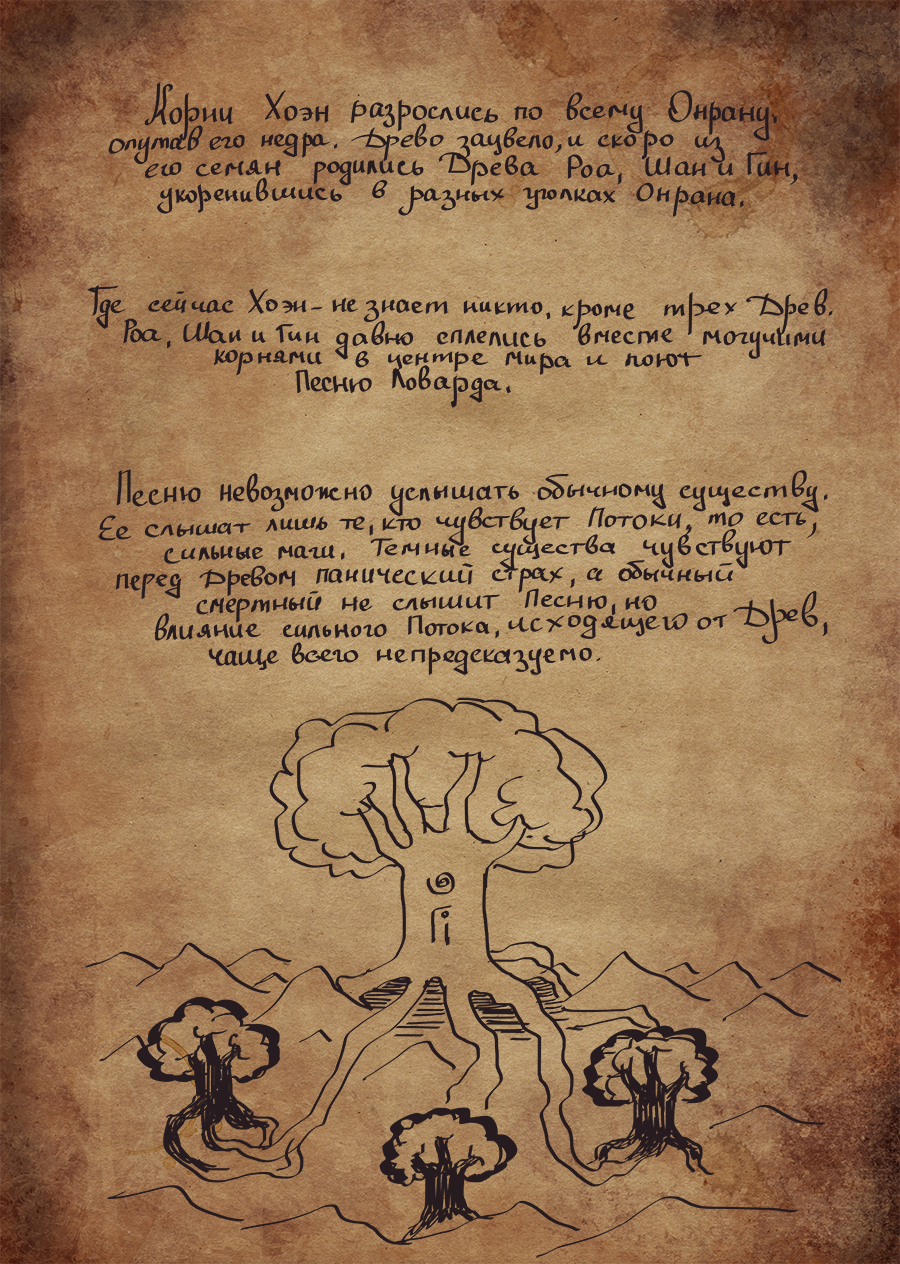 Корни Хоэн разрослись по всему Онрану,
опутав его недра. Древо зацвело, и скоро из
его семян родились Древа Роа, Шан и Гин,
укоренившись в разных уголках Онрана.
Где сейчас Хоэн - не знает никто, кроме трех Древ.
Роа, Шан и Гин давно сплелись вместе могучими
корнями в центре мира и поют
Песню Ловарда.
Песню невозможно услышать обычному существу.
Ее слышат лишь те, кто чувствует Потоки, то есть,
сильные маги. Темные существа чувствуют
перед Древом панический страх, а обычный
смертный не слышит Песню, но
влияние сильного Потока, исходящего от Древ,
чаще всего непредсказуемо.